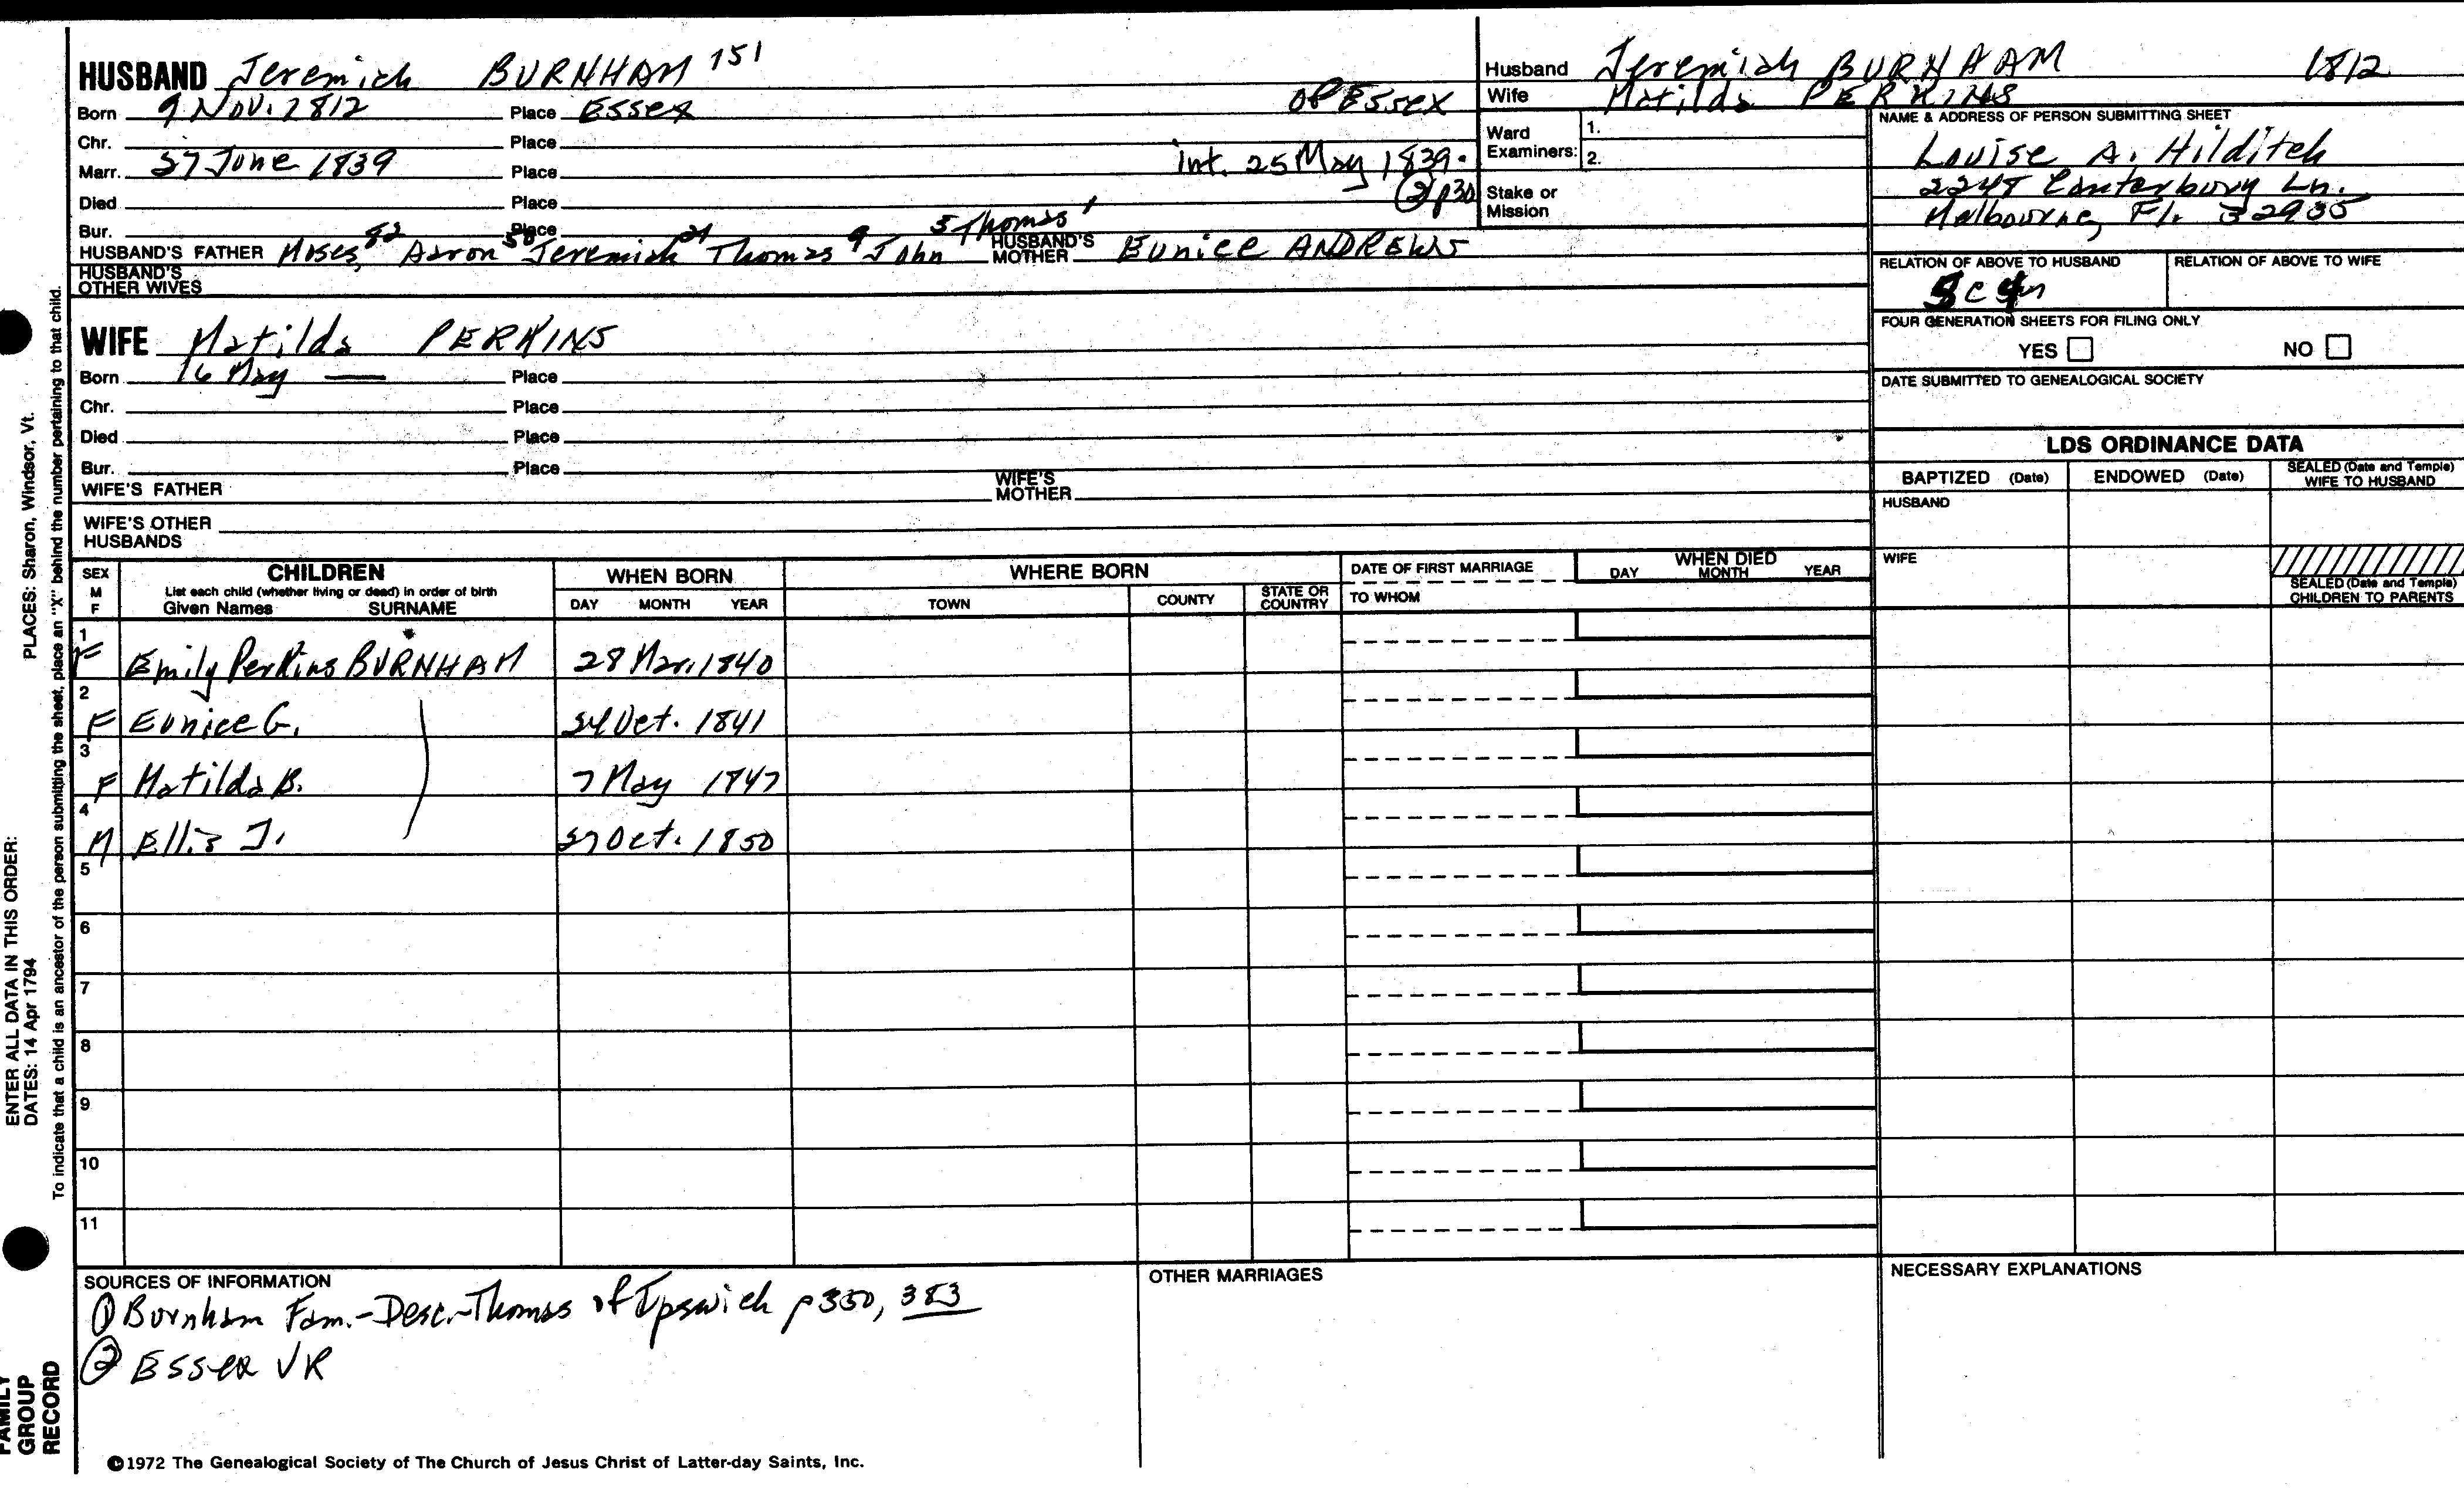 HUSBAND Jeremiah BURNHAM 151
Born 9 Nov. 1812 Place Essex of Essex
Chr. Place
Marr. 27 June 1839 Place int. 25 May 1839.
Died Place ② p30
Bur. Place
HUSBAND'S FATHER Moses, 82 Aaron 50 Jeremiah 21 Thomas 9 John 5 Thomas 1 HUSBAND'S MOTHER Eunice ANDREWS
HUSBAND'S OTHER WIVES
WIFE Matilda PERKINS
Born 16 May — Place
Chr. Place
Died Place
Bur. Place
WIFE'S FATHER WIFE'S MOTHER
WIFE'S OTHER HUSBANDS
Husband Jeremiah BURNHAM 1812
Wife Matilda PERKINS
Ward Examiners: 1.
2.
Stake or Mission
NAME & ADDRESS OF PERSON SUBMITTING SHEET
Louise A. Hilditch
Canterbury Ln.
Melbourne, Fl. 32935
RELATION OF ABOVE TO HUSBAND RELATION OF ABOVE TO WIFE
FOUR GENERATION SHEETS FOR FILING ONLY
YES NO
DATE SUBMITTED TO GENEALOGICAL SOCIETY
LDS ORDINANCE DATA
BAPTIZED (Date) ENDOWED (Date) SEALED (Date and Temple) WIFE TO HUSBAND
HUSBAND
WIFE
SEALED (Date and Temple) CHILDREN TO PARENTS
SEX M F CHILDREN WHEN BORN WHERE BORN DATE OF FIRST MARRIAGE WHEN DIED
List each child (whether living or dead) in order of birth
Given Names SURNAME DAY MONTH YEAR TOWN COUNTY STATE OR COUNTRY TO WHOM DAY MONTH YEAR
1 F Emily Perkins BURNHAM 28 Mar. 1840
2 F Eunice G. 24 Oct. 1841
3 F Matilda B. 7 May 1847
4 M Ellis J. 27 Oct. 1850
5
6
7
8
9
10
11
SOURCES OF INFORMATION
① Burnham Fam.-Desc.-Thomas of Ipswich p 350, 383
② Essex VR
OTHER MARRIAGES
NECESSARY EXPLANATIONS
©1972 The Genealogical Society of The Church of Jesus Christ of Latter-day Saints, Inc.
ENTER ALL DATA IN THIS ORDER:
DATES: 14 Apr 1794 PLACES: Sharon, Windsor, Vt.
To indicate that a child is an ancestor of the person submitting the sheet, place an "X" behind the number pertaining to that child.
FAMILY
GROUP
RECORD